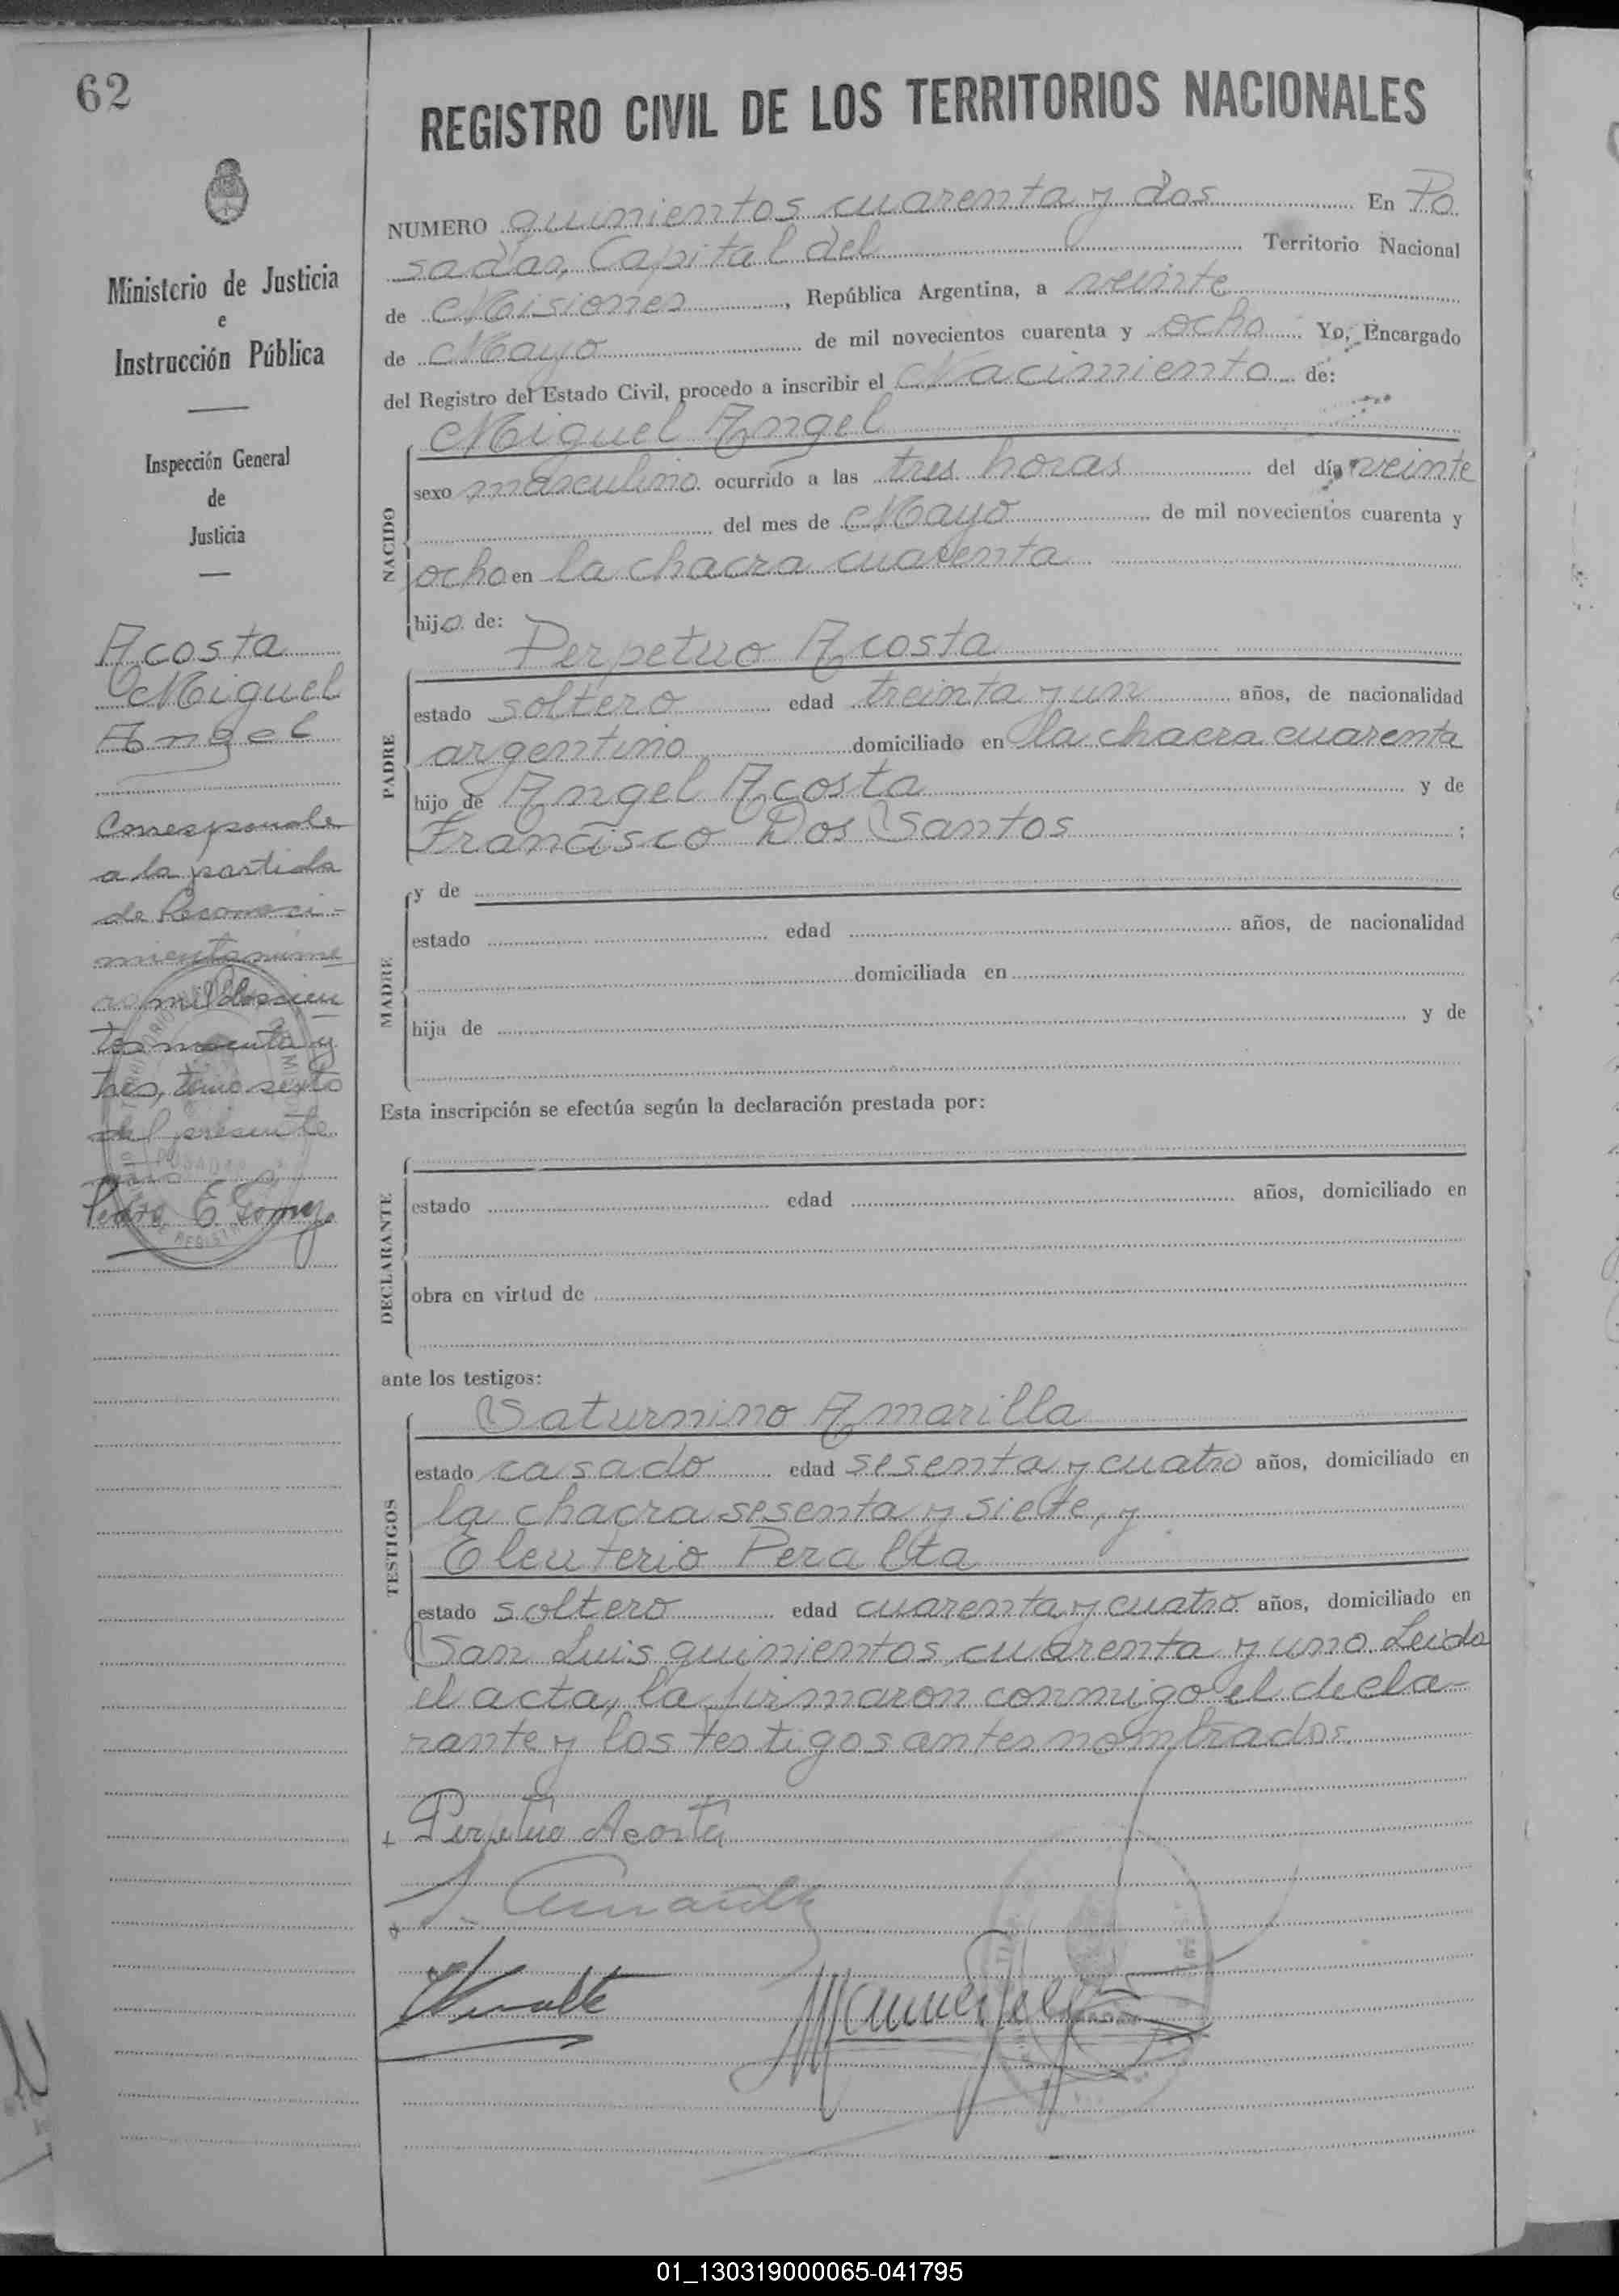 62
REGISTRO CIVIL DE LOS TERRITORIOS NACIONALES
Ministerio de Justicia
e
Instrucción Pública
Inspección General
de
Justicia
Acosta
Miguel
Angel
Corresponde
a la partida
de Reconoci-
miento núme
ro mil doscien
tos noventa y
tres, tomo sexto
del presente
Pedro E Gomez
NUMERO quinientos cuarenta y dos En Po
sadas, Capital del Territorio Nacional
de Misiones, República Argentina, a veinte
de Mayo de mil novecientos cuarenta y ocho Yo, Encargado
del Registro del Estado Civil, procedo a inscribir el Nacimiento de:
Miguel Angel
NACIDO
sexo masculino ocurrido a las tres horas del día veinte
del mes de Mayo de mil novecientos cuarenta y
ocho en la chacra cuarenta
hijo de:
Perpetuo Acosta
PADRE
estado soltero edad treinta y un años, de nacionalidad
argentino domiciliado en la chacra cuarenta
hijo de Angel Acosta y de
Francisco Dos Santos ;
MADRE
y de
estado edad años, de nacionalidad
domiciliada en
hija de y de
Esta inscripción se efectúa según la declaración prestada por:
DECLARANTE
estado edad años, domiciliado en
obra en virtud de
ante los testigos:
TESTIGOS
Saturnino Amarilla
estado casado edad sesenta y cuatro años, domiciliado en
la chacra sesenta y siete, y
Eleuterio Peralta
estado soltero edad cuarenta y cuatro años, domiciliado en
San Luis quinientos cuarenta y uno Leida
el acta, la firmaron conmigo el decla-
rante y los testigos antes nombrados.
Perpetuo Acosta
S. Amarilla
01_130319000065-041795